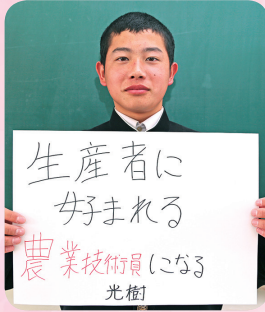 生産者に
好まれる
農業技術員になる
光樹